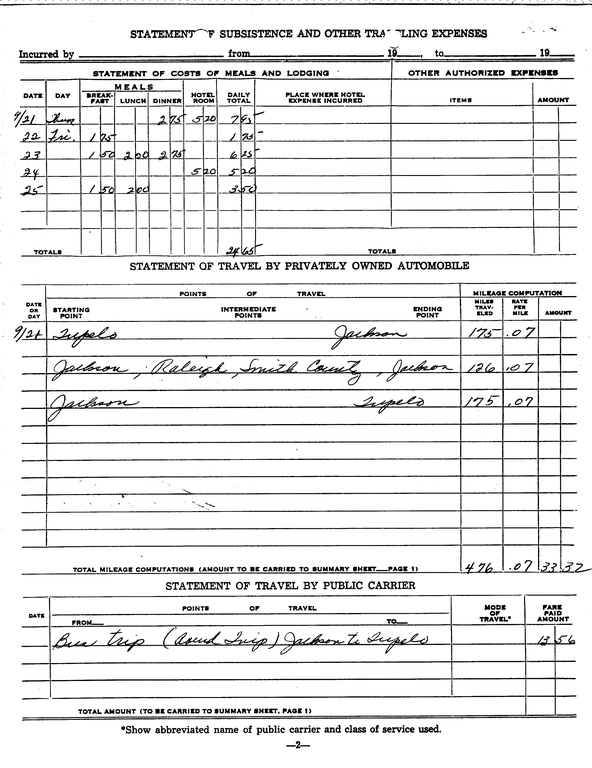 STATEMENT OF SUBSISTENCE AND OTHER TRAVELING EXPENSES
Incurred by from 19 , to 19
STATEMENT OF COSTS OF MEALS AND LODGING OTHER AUTHORIZED EXPENSES
MEALS
DATE DAY BREAK-FAST LUNCH DINNER HOTEL ROOM DAILY TOTAL PLACE WHERE HOTEL EXPENSE INCURRED ITEMS AMOUNT
9/21 Thur 2 75 5 20 7 95
22 Fri. 1 75 1 75
23 1 50 2 00 2 75 6 25
24 5 20 5 20
25 1 50 2 00 3 50
TOTALS 24 65 TOTALS
STATEMENT OF TRAVEL BY PRIVATELY OWNED AUTOMOBILE
POINTS OF TRAVEL MILEAGE COMPUTATION
DATE OR DAY STARTING POINT INTERMEDIATE POINTS ENDING POINT MILES TRAV-ELED RATE PER MILE AMOUNT
9/21 Tupelo Jackson 175 .07
Jackson, Raleigh, Smith County, Jackson 126 .07
Jackson Tupelo 175 .07
TOTAL MILEAGE COMPUTATIONS (AMOUNT TO BE CARRIED TO SUMMARY SHEET—PAGE 1) 476 .07 33 32
STATEMENT OF TRAVEL BY PUBLIC CARRIER
DATE POINTS OF TRAVEL MODE OF TRAVEL* FARE PAID AMOUNT
FROM— TO—
Bus trip (Round Trip) Jackson to Tupelo 13 56
TOTAL AMOUNT (TO BE CARRIED TO SUMMARY SHEET, PAGE 1)
*Show abbreviated name of public carrier and class of service used.
—2—